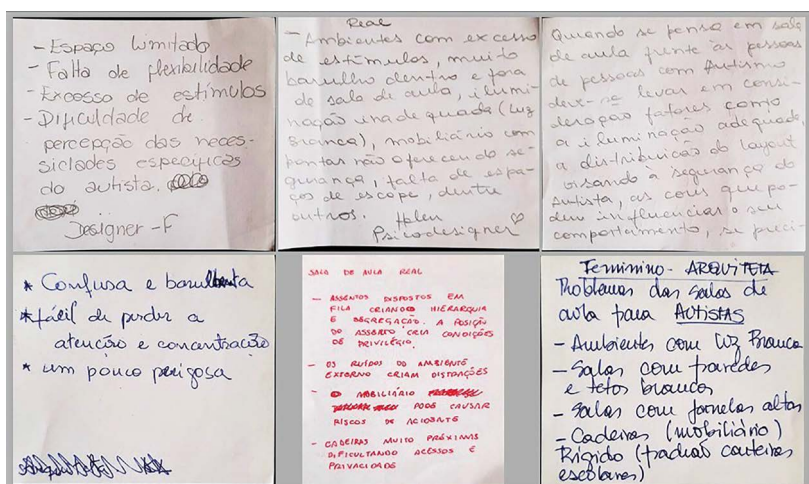 - Espaço Limitado
- Falta de flexibilidade
- Excesso de estímulos
- Dificuldade de
percepção das neces-
sidades específicas
do autista.
Designer - F
Real
- Ambientes com excesso
de estímulos, muito
barulho dentro e fora
de sala de aula, ilumi-
nação inadequada (Luz
Branca), mobiliário com
pontas não oferecendo se-
gurança, falta de espa-
ços de escape, dentre
outros. Helen
Psicodesigner
Quando se pensa em sala
de aula frente às pessoas
de pessoas com Autismo
deve-se levar em consi-
deração fatores como
a iluminação adequada,
a distribuição do layout
visando a segurança do
Autista, as cores que po-
dem influenciar o seu
comportamento, se preci-
* Confusa e barulhenta
* fácil de perder a
atenção e concentração
* um pouco perigosa
SALA DE AULA REAL
- ASSENTOS DISPOSTOS EM
FILA CRIANDO HIERARQUIA
E SEGREGAÇÃO. A POSIÇÃO
DO ASSENTO CRIA CONDIÇÕES
DE PRIVILÉGIO.
- OS RUÍDOS DO AMBIENTE
EXTERNO CRIAM DISTRAÇÕES
- O MOBILIÁRIO
PODE CAUSAR
RISCOS DE ACIDENTE
- CADEIRAS MUITO PRÓXIMAS
DIFICULTANDO ACESSOS E
PRIVACIDADE
Feminino - ARQUITETA
Problemas das salas de
aula para AUTISTAS
- Ambientes com luz Branca
- Salas com paredes
e tetos brancos
- Salas com janelas altas
- Cadeiras (mobiliário)
Rígido (padrão carteiras
escolares)